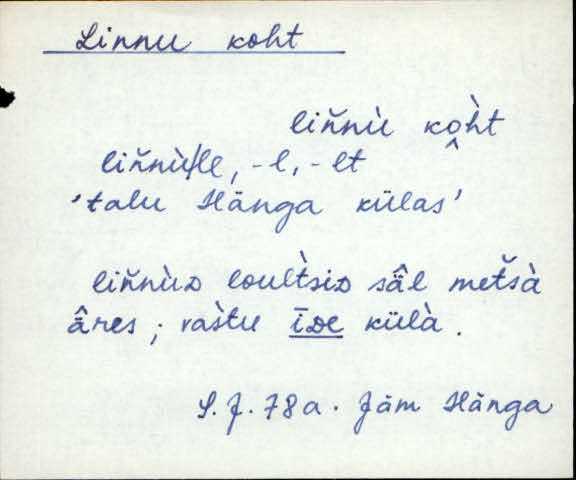 Linnu koht
liňnù kòh̀t
liňnùlle, -l, -lt
'talu Hänga külas'
liňnùᴅ loult̀siᴅ sä̂l met̆sà
âres; ràštu īᴅe külà.
S. J. 78a. Jäm Hänga